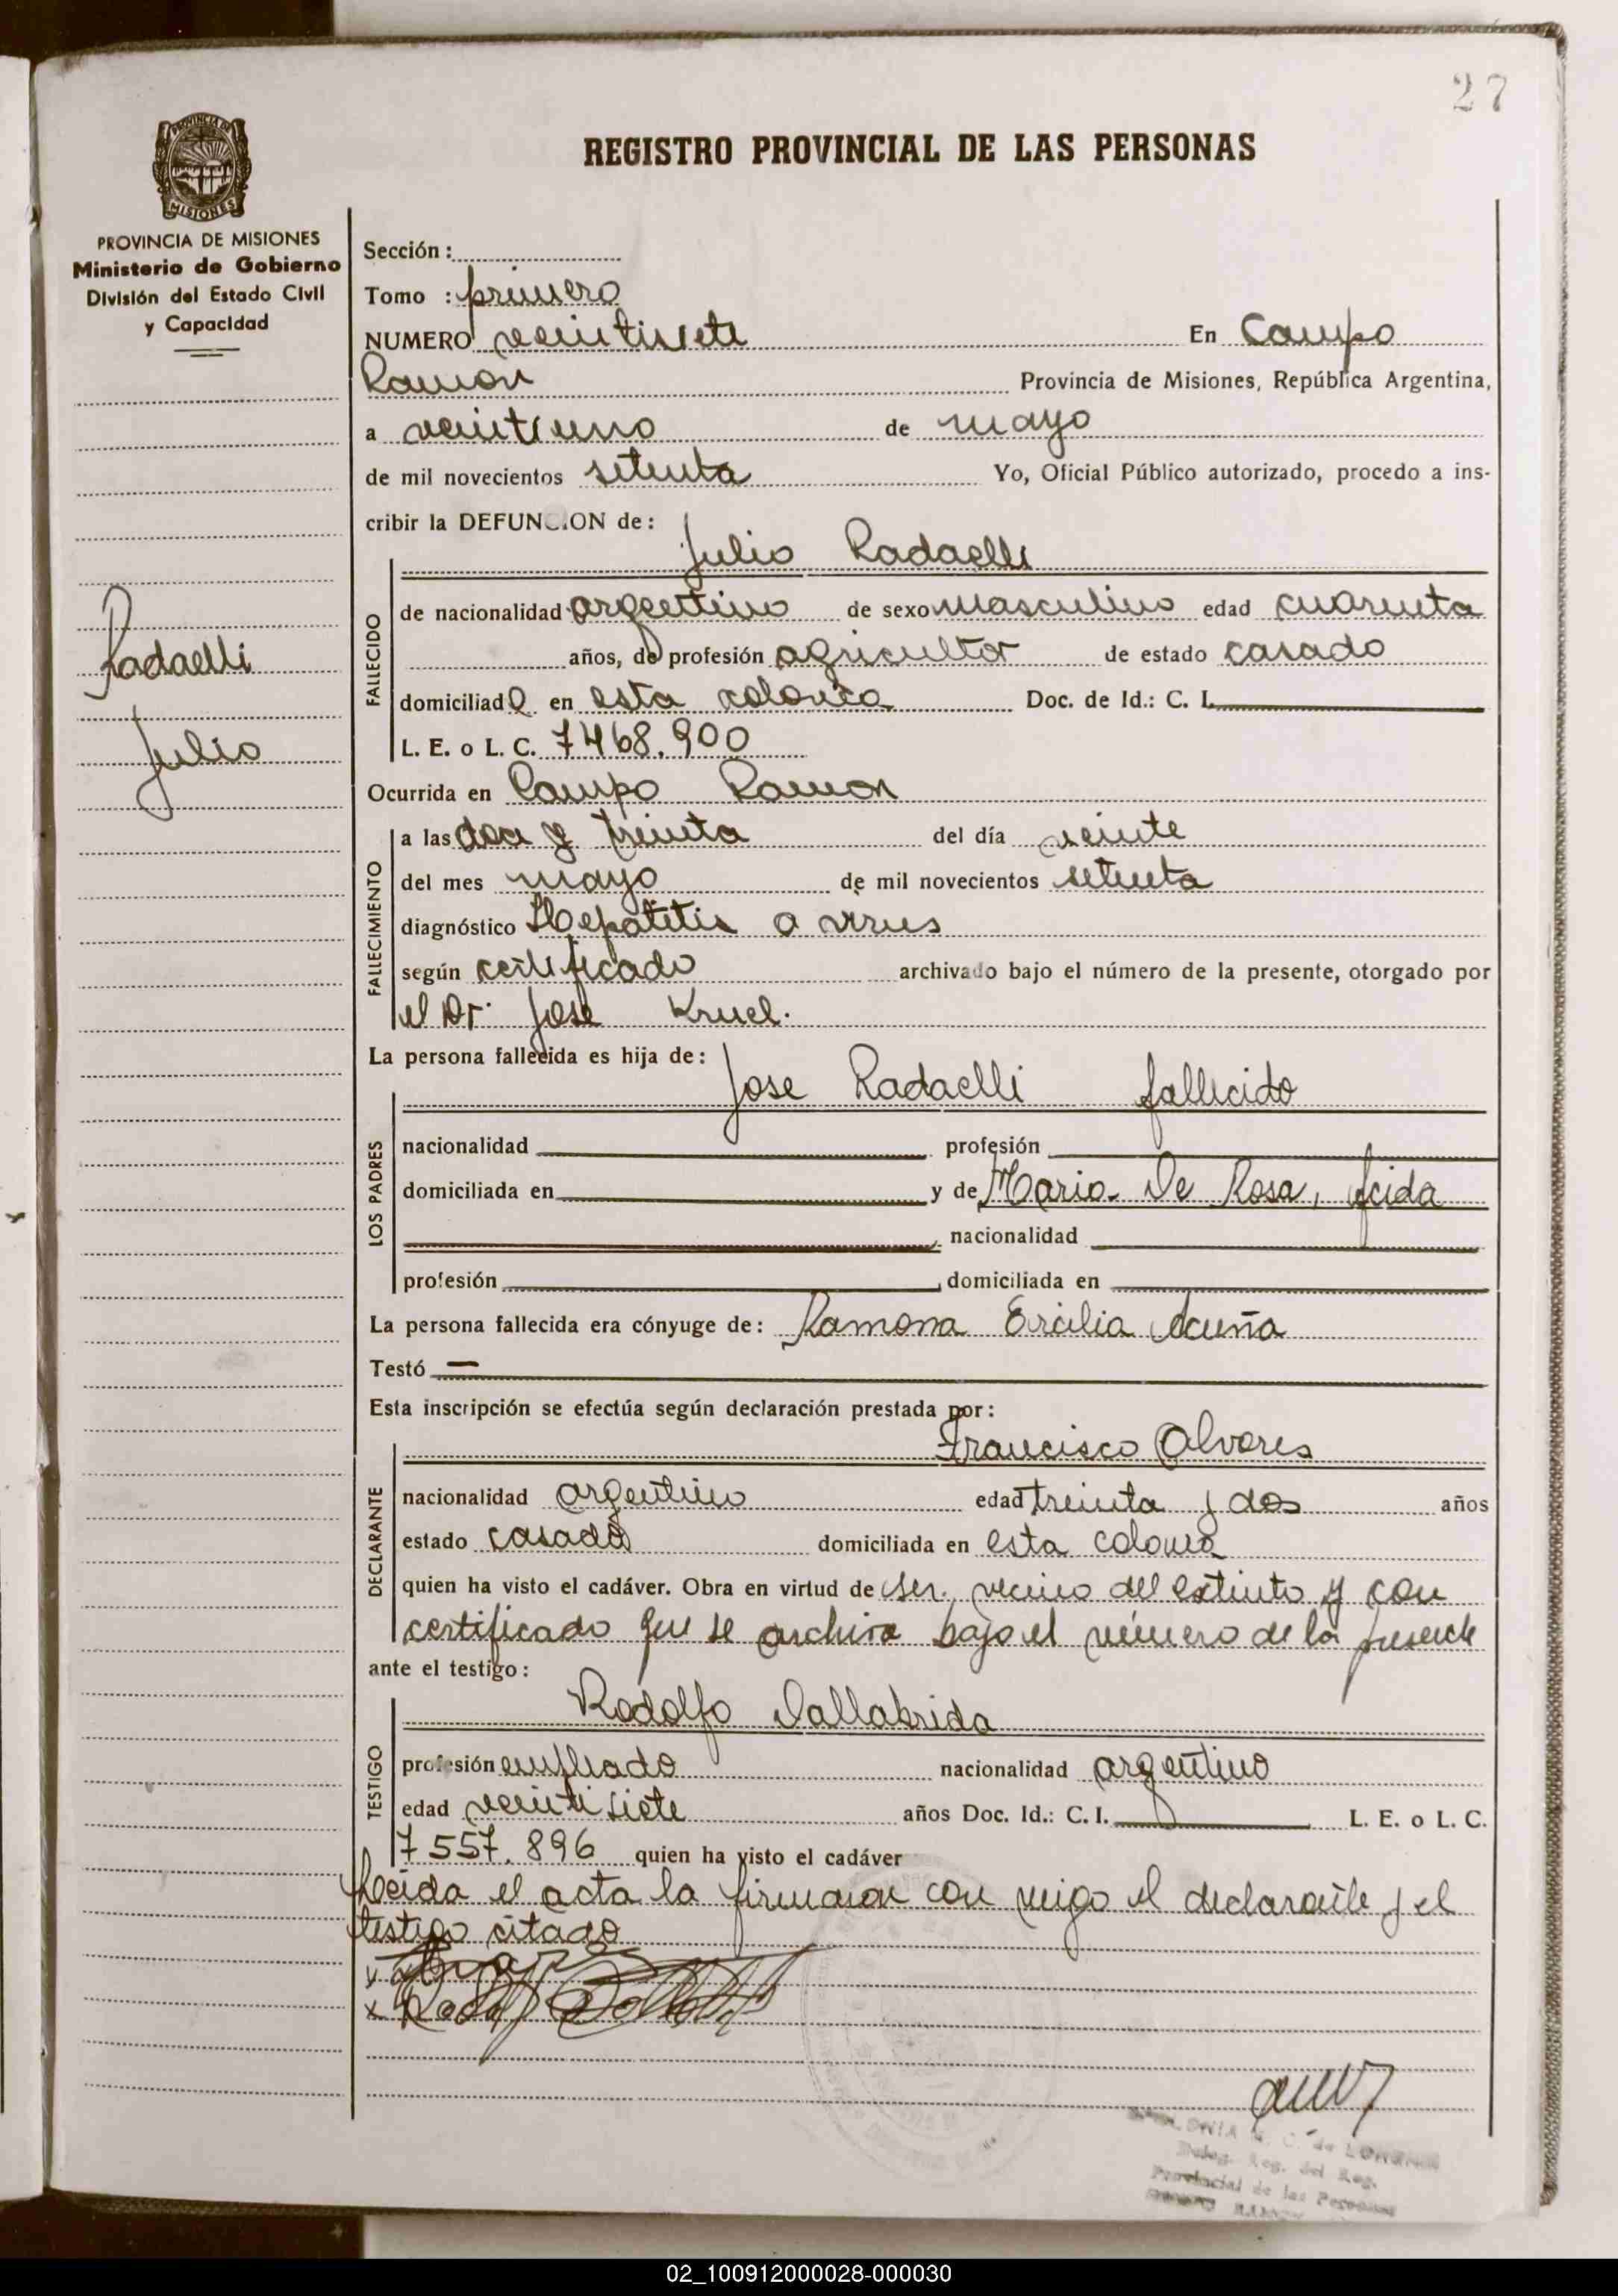 27
REGISTRO PROVINCIAL DE LAS PERSONAS
PROVINCIA DE MISIONES
MISIONES
PROVINCIA DE MISIONES
Ministerio de Gobierno
División del Estado Civil
y Capacidad
Radaelli
Julio
Sección :
Tomo : primero
NUMERO veintisiete En Campo
Ramón Provincia de Misiones, República Argentina,
a veintiuno de mayo
de mil novecientos setenta Yo, Oficial Público autorizado, procedo a ins-
cribir la DEFUNCION de :
Julio Radaelli
FALLECIDO
de nacionalidad argentino de sexo masculino edad cuarenta
años, de profesión agricultor de estado casado
domiciliado en esta colonia Doc. de Id.: C. I.
L. E. o L. C. 7468.900
Ocurrida en Campo Ramon
FALLECIMIENTO
a las doce y treinta del día veinte
del mes mayo de mil novecientos setenta
diagnóstico Hepatitis a virus
según certificado archivado bajo el número de la presente, otorgado por
el Dr. Jose Kruel.
La persona fallecida es hija de :
Jose Radaelli fallecido
LOS PADRES
nacionalidad profesión
domiciliada en y de Maria De Rosa, fcida
nacionalidad
profesión , domiciliada en
La persona fallecida era cónyuge de : Ramona Ercilia Acuña
Testó —
Esta inscripción se efectúa según declaración prestada por :
Francisco Alvares
DECLARANTE
nacionalidad argentino edad treinta y dos años
estado casado domiciliada en esta colonia
quien ha visto el cadáver. Obra en virtud de ser vecino del extinto y con
certificado que se archiva bajo el número de la presente
ante el testigo :
Rodolfo Dallabrida
TESTIGO
profesión empleado nacionalidad argentino
edad veintisiete años Doc. Id.: C. I. L. E. o L. C.
7557.896 quien ha visto el cadáver
Leida el acta la firmaron con migo el declarante y el
testigo citado
x
x Rodolfo Dallabrida
de
Deleg. Reg. del Reg.
Provincial de las Personas
02_100912000028-000030